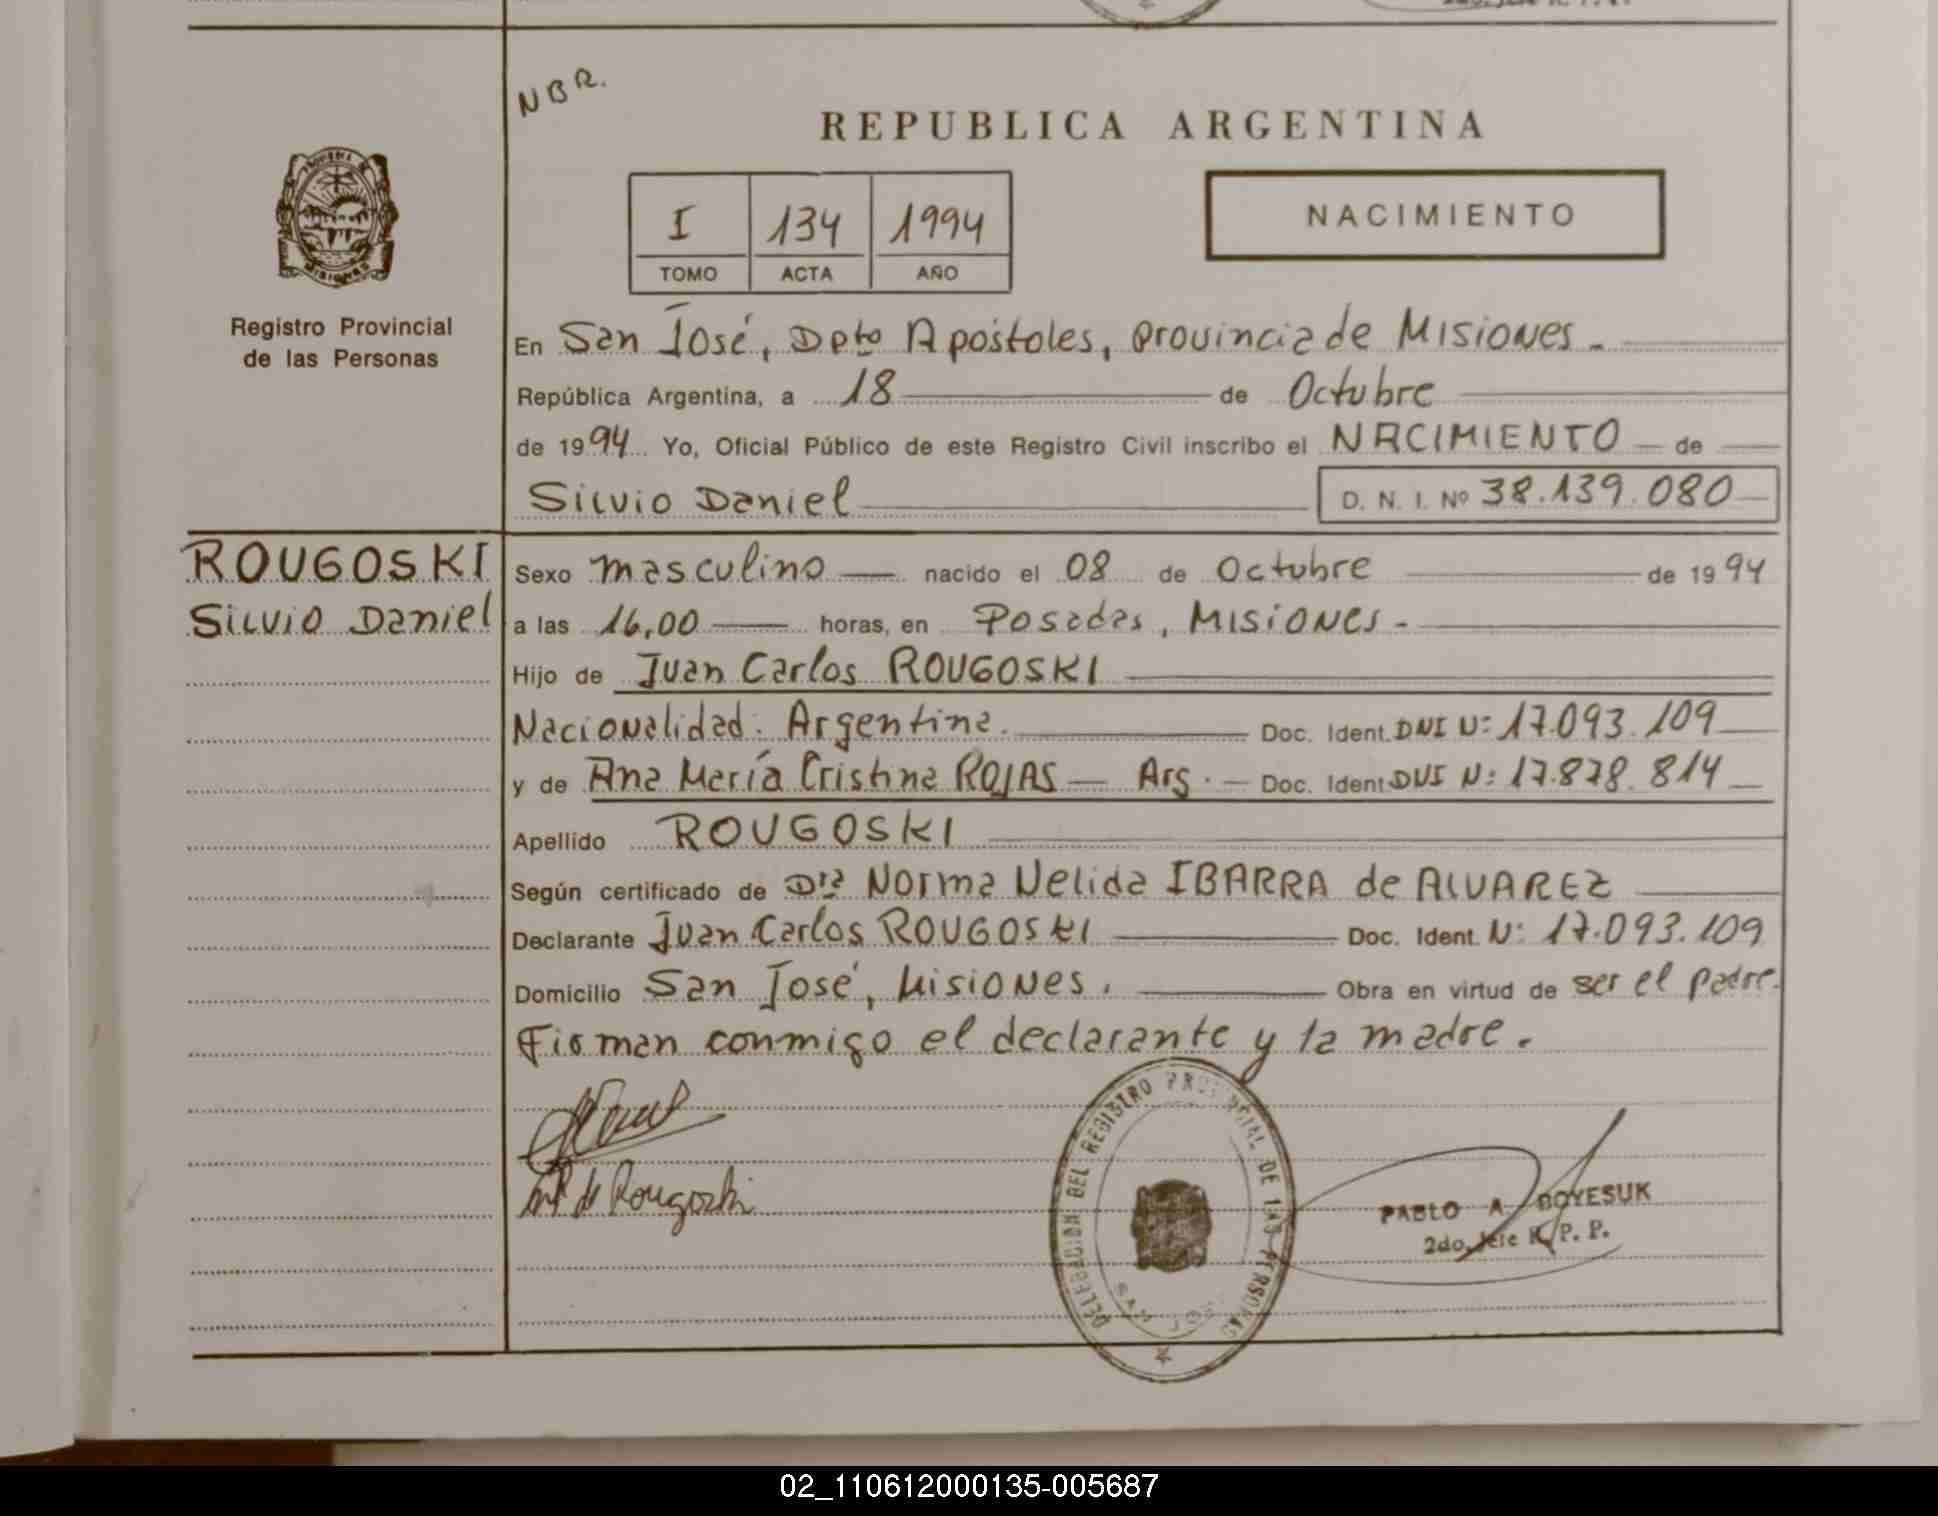 NBR.
REPUBLICA ARGENTINA
I 134 1994
TOMO ACTA AÑO
NACIMIENTO
Registro Provincial
de las Personas
En San José, Dpto Apóstoles, provincia de Misiones.
República Argentina, a 18 de Octubre
de 1994 Yo, Oficial Público de este Registro Civil inscribo el NACIMIENTO de
Silvio Daniel D. N. I. Nº 38.139.080
ROUGOSKI
Silvio Daniel
Sexo masculino nacido el 08 de Octubre de 1994
a las 16,00 horas, en Posadas, Misiones.-
Hijo de Juan Carlos ROUGOSKI
Nacionalidad: Argentina. Doc. Ident. DNI N: 17.093.109
y de Ana María Cristina ROJAS Arg. Doc. Ident DNI N: 17.878.814
Apellido ROUGOSKI
Según certificado de Dra Norma Nelida IBARRA de ALVAREZ
Declarante Juan Carlos ROUGOSKI Doc. Ident. N: 17.093.109
Domicilio San José, Misiones. Obra en virtud de ser el padre.
Firman conmigo el declarante y la madre.
de Rougoski
DELEGACION DEL REGISTRO PROVINCIAL DE LAS PERSONAS
SAN JOSE
PABLO A. BOYESUK
2do. Jefe R. P. P.
02_110612000135-005687